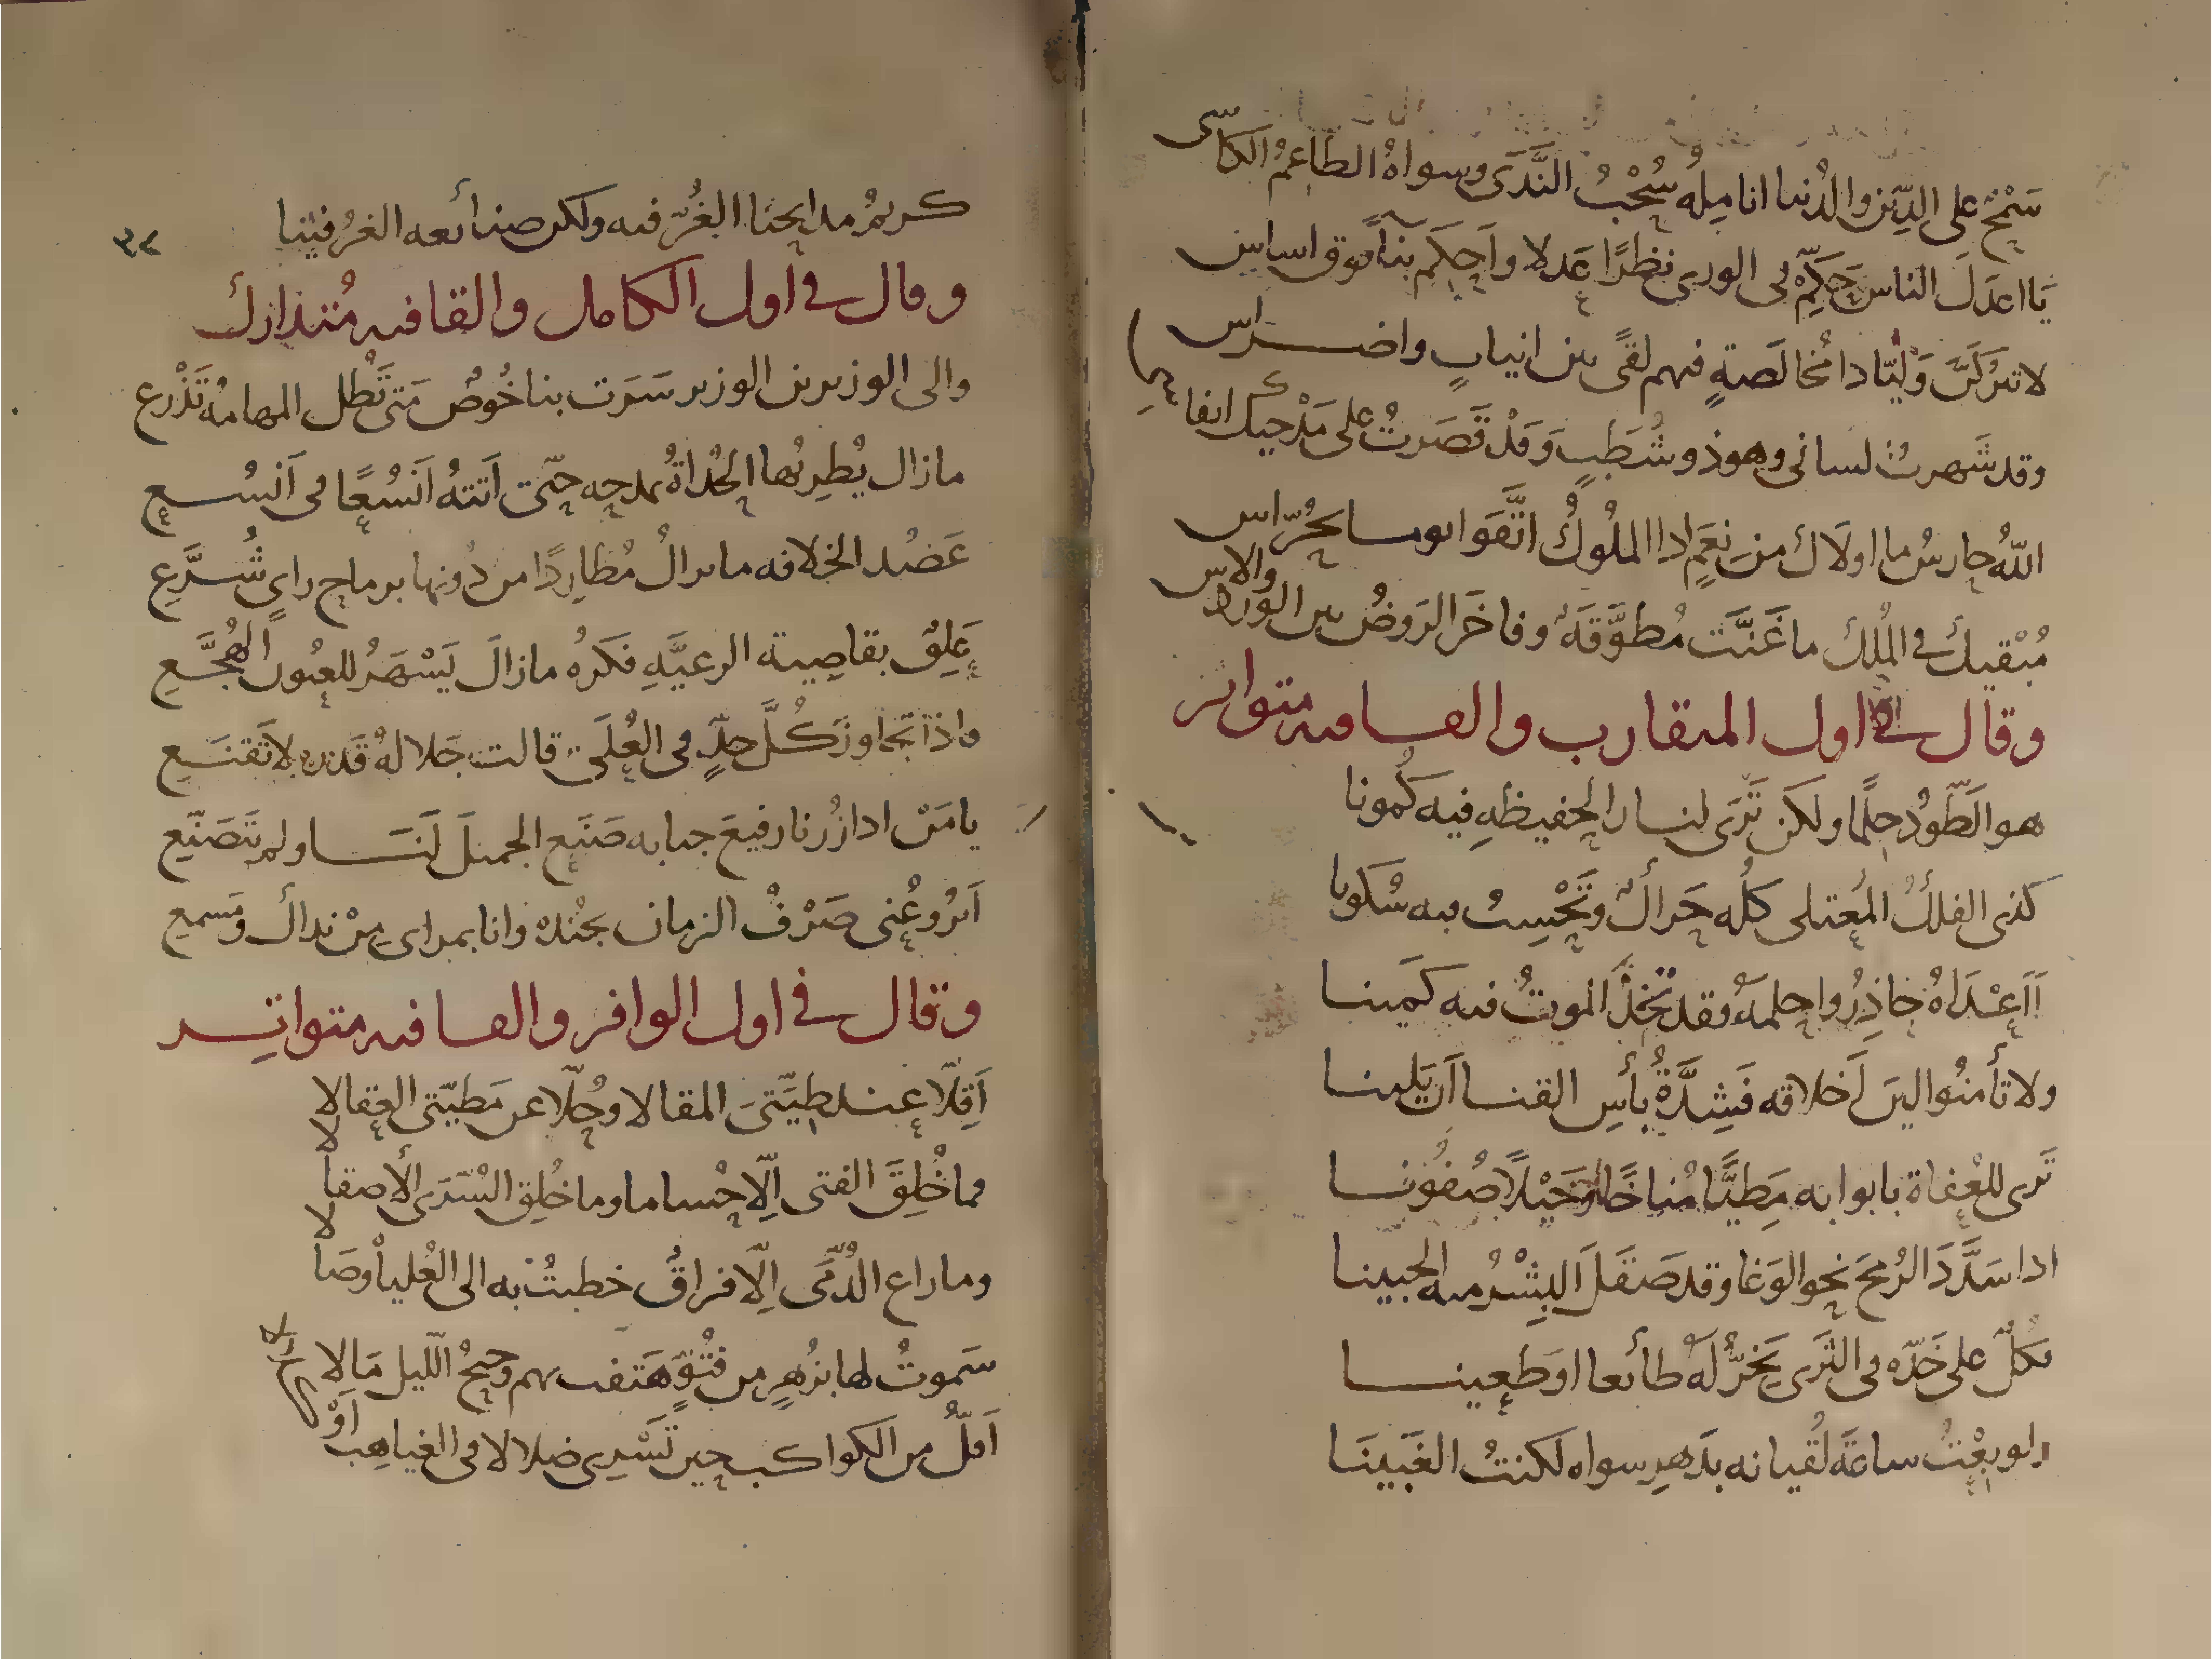 سَمْحٌ على الدِّين والدُّنيا انامِلُه سُحْبُ النَّدَى وسواهُ الطاعمُ الكاسى
يَا اعدَلَ الناس حَكِّمْ فى الورى نظرًا عَدلا واَحكِم بناً فوق اساسِ
لا تتركَنَّ وَليّا دا مُخالَصةٍ فهم لقىً بين انيابٍ واضراس
وقد شَهرتُ لسانى وهو ذو شُطَبٍ وَقَدْ قَصَرتُ على مَدْحيك انفاسى
اللهُ حارسُ ما اولاك من نِعَمٍ ادا الملُوكُ اتَّقَوا يوما بحُرّاس
مُبْقيك فى المُلك ما غَنَّت مُطوَّقَةٌ وفاخَرَ الرَوضُ بين الوَرد والاس
وقال فى اول المتقارب والقافيه متواتر
هو الطَّودُ حلمًا ولكن تَرَى لنار الحفيظهِ فيه كُمونا
كذى الفلكُ المُعتلى كلُه حَراكٌ وتَحْسِبُ فيه سُكونا
اَاَعْدَاهُ حاذِرُوا حلمهُ فقد تخذَ الموتُ فيه كَمينا
ولا تأمنُوا لين اَخلاقه فَشِدَّةُ بأسِ القنا اَن يَلينا
تَرى للعُفاة بابوابه مَطيًّا مُناخًا وخَيْلاً صُفُونا
ادا سَدَّدَ الرُمحَ نحو الوَغا وقد صَقَلَ البِشْرُ منه الجبينا
بكلٍّ على خَدّه فى الثَرى يَخرُّ لهُ طائعا او طَعينا
ولو بِعْتُ ساعَةَ لُقيانه بدَهرٍ سواه لكنتُ الغَبَينَا
كريمٌ مدايحنا الغُرّ فيه ولكن صنائعه الغرُ فينا
٣٢
وقال فى اول الكامل والقافيه مُتدارك
والى الوزير بن الوزير سَرَت بنا خُوصٌ مَتى تَطُل المهامهُ تَذْرع
مازال يُطرِبُها الحُداةُ بمدحه حتى اَتتهُ اَنسُعًا فى اَنسُع
عَضُد الخلافه ما يزالُ مُطارِدًا من دُونها برماح راىٍ شُرَّعِ
عَلِقٌ بقاصِية الرعيَّهِ فكرُه مازالَ يَسْهَرُ للعيُون الهُجَّعِ
واذا تجاوزَ كُلَّ حدٍّ فى العُلَى قالت جَلالهُ قَدره لا تَقنَعِ
يا مَنْ ادا زُرنا رفيعَ جنابه صَنَع الجميلَ لَنَا ولم يَتَصَنّعِ
اَيرُوعُنى صَرْفُ الزمان بجُنده وانا بمراى مِنْ نداك ومَسمعِ
وقال فى اول الوافر والقافيه متواتِر
اَقِلّا عند طِيَّتىَ المقالا وحُلّا عن مَطيّتى العِقالا
فما خُلِقَ الفتى اِلّا حُساما وما خُلِق السُرَى الا صقالا
وما راع الدُّمَى اِلّا فراقٌ خطبتُ به الى العُلياْ وصَالا
سَموتُ لها بزُهرٍ من فتُوٍّ هَتفت بهم وجنحُ اللّيل مَالا
اَقلُّ من الكواكب حين تَسْرى ضلالا فى الغياهِب اَوْ